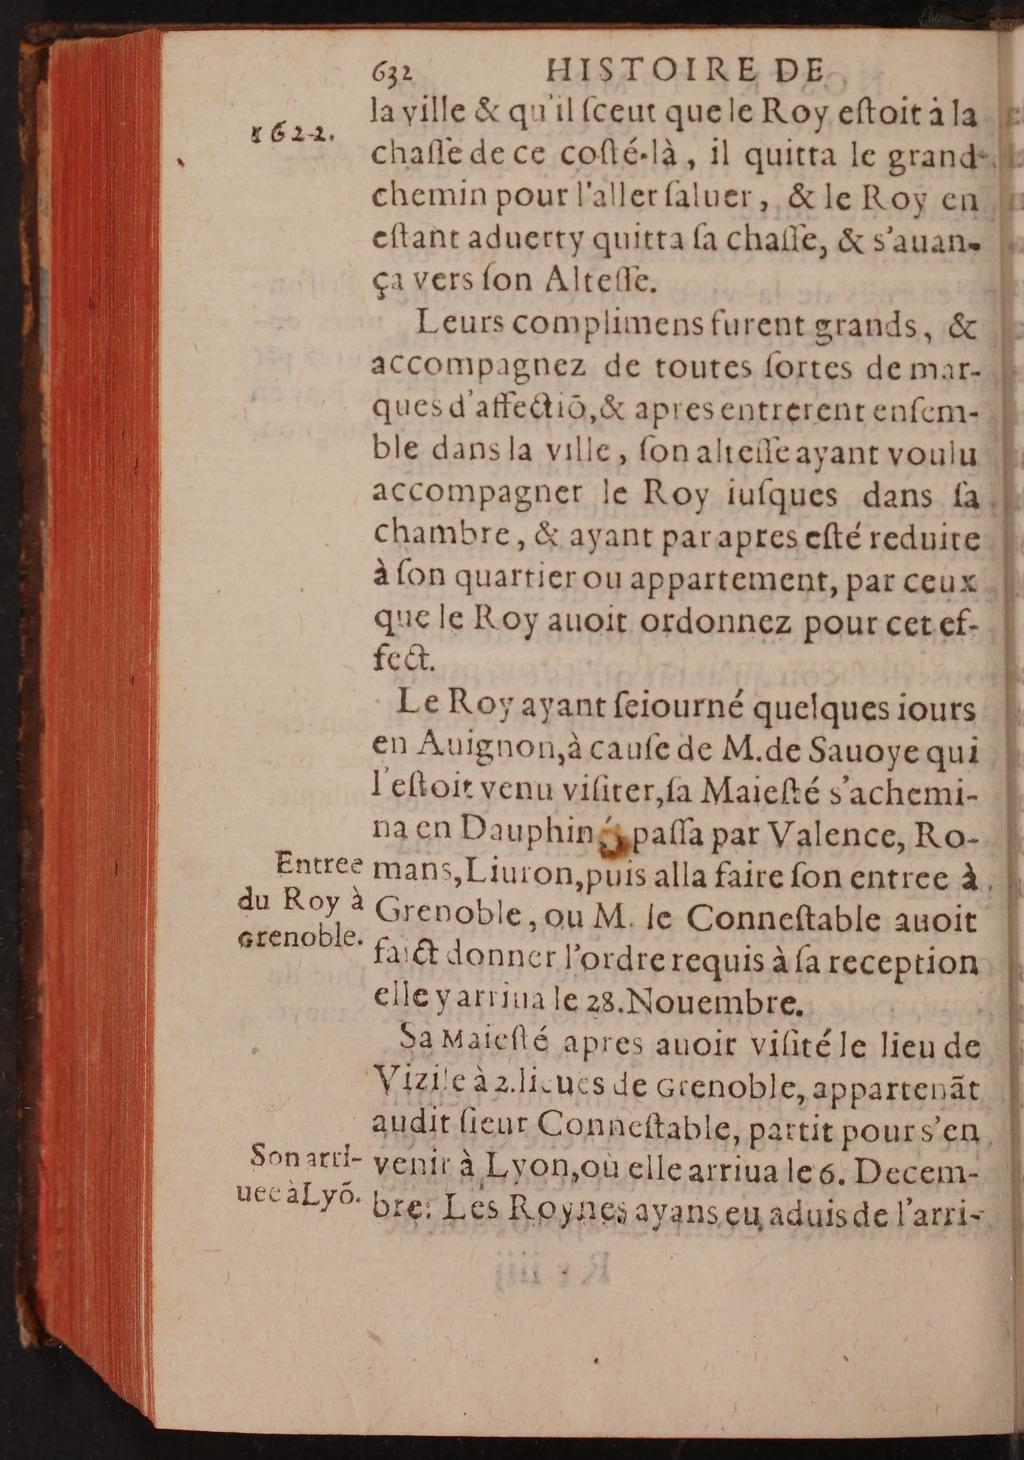 632 HISTOIRE DE
1622.
la ville & qu'il ſceut que le Roy eſtoit à la
chaſſe de ce coſté-là, il quitta le grand
chemin pour l'aller ſaluer, & le Roy en
eſtant aduerty quitta ſa chaſſe, & s'auan-
ça vers ſon Alteſſe.
Leurs complimens furent grands, &
accompagnez de toutes ſortes de mar-
ques d'affectiõ, & apres entrerent enſem-
ble dans la ville, ſon alteſſe ayant voulu
accompagner le Roy iuſques dans ſa
chambre, & ayant par apres eſté reduite
à ſon quartier ou appartement, par ceux
que le Roy auoit ordonnez pour cet ef-
fect.
Le Roy ayant ſeiourné quelques iours
en Auignon, à cauſe de M. de Sauoye qui
l'eſtoit venu viſiter, ſa Maieſté s'achemi-
na en Dauphiné, paſſa par Valence, Ro-
mans, Liuron, puis alla faire ſon entree à
Grenoble, ou M. le Conneſtable auoit
faict donner l'ordre requis à ſa reception
elle y arriua le 28. Nouembre.
Entree
du Roy à
Grenoble.
Sa Maieſté apres auoir viſité le lieu de
Vizile à 2. lieues de Grenoble, appartenãt
audit ſieur Conneſtable, partit pour s'en
venir à Lyon, où elle arriua le 6. Decem-
bre: Les Roynes ayans eu aduis de l'arri-
Son arri-
uee à Lyõ.